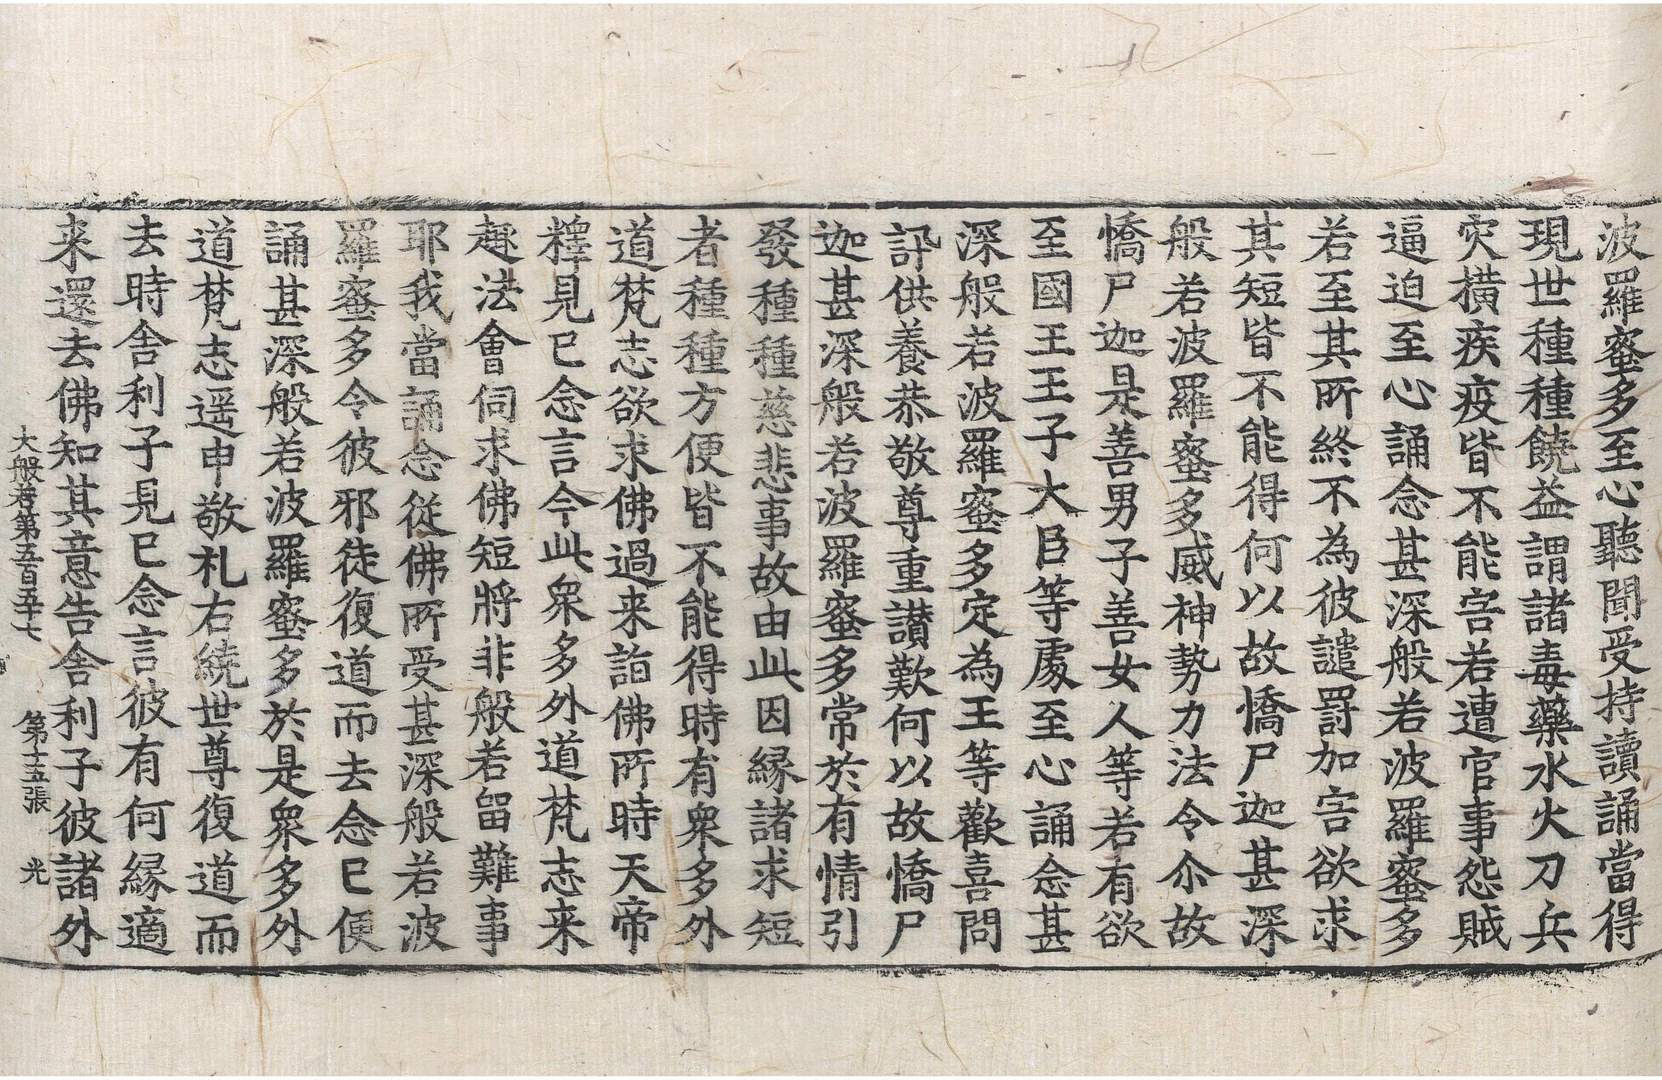 波羅蜜多至心聽聞受持讀誦當得
現世種種饒益謂諸毒藥水火刀兵
灾横疾疫皆不能害若遭官事怨賊
逼迫至心誦念甚深般若波羅蜜多
若至其所終不為彼譴罸加害欲求
其短皆不能得何以故憍尸迦甚深
般若波羅蜜多威神勢力法令尒故
憍尸迦是善男子善女人等若有欲
至國王王子大臣等處至心誦念甚
深般若波羅蜜多定為王等歡喜問
訊供養恭敬尊重讃歎何以故憍尸
迦甚深般若波羅蜜多常於有情引
發種種慈悲事故由此因縁諸求短
者種種方便皆不能得時有衆多外
道梵志欲求佛過来詣佛所時天帝
釋見已念言今此衆多外道梵志来
趣法會伺求佛短將非般若留難事
耶我當誦念從佛所受甚深般若波
羅蜜多令彼邪徒復道而去念已便
誦甚深般若波羅蜜多於是衆多外
道梵志遥申敬礼右繞世尊復道而
去時舍利子見已念言彼有何縁適
来還去佛知其意告舍利子彼諸外
大般若第五百五十七 第十五張 光